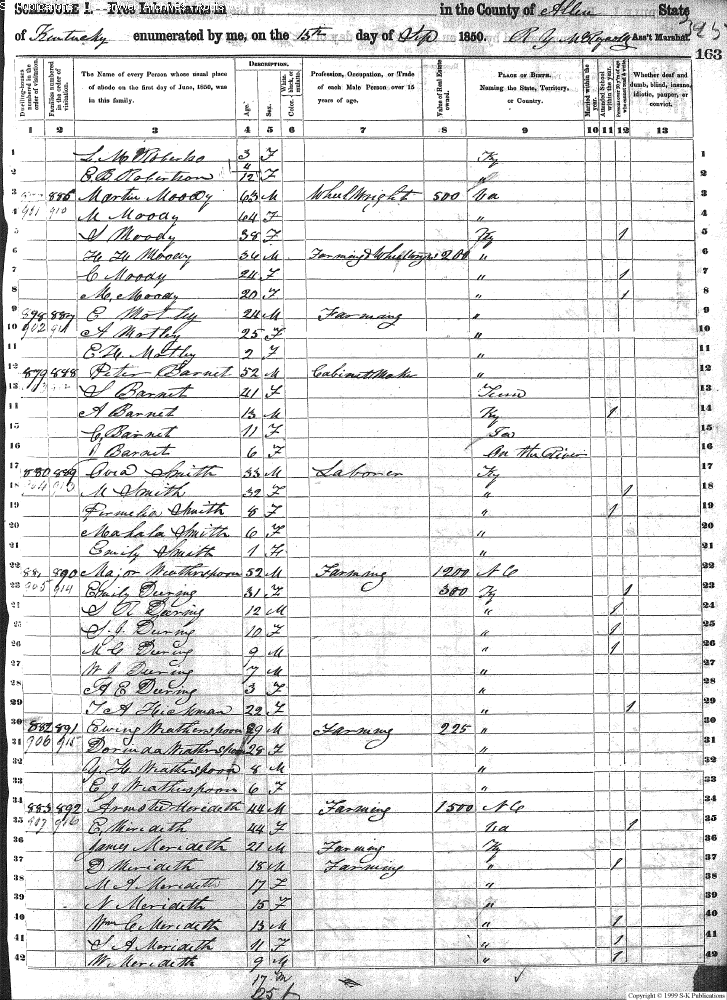 SCHEDULE I.—Free Inhabitants in in the County of Allen State
of Kentucky enumerated by me, on the 15th day of Sep 1850. Ass't Marshal. 345
163
Dwelling-houses numbered in the order of visitation.
Families numbered in the order of visitation.
The Name of every Person whose usual place of abode on the first day of June, 1850, was in this family.
DESCRIPTION.
Age.
Sex.
Color, White, black, or mulatto.
Profession, Occupation, or Trade of each Male Person over 15 years of age.
Value of Real Estate owned.
PLACE OF BIRTH. Naming the State, Territory, or Country.
Married within the year.
Attended School within the year.
Whether deaf and dumb, blind, insane, idiotic, pauper, or convict.
1 2 3 4 5 6 7 8 9 10 11 12 13
1 3 F Ky 1
2 E B Robertson 12 F " 2
3 885 Martin Moody 63 M Wheel Wright 500 Va 3
4 901 910 M Moody 64 F " 4
5 S Moody 38 F Ky 1 5
6 Moody 36 M Farming & 200 " 6
7 C Moody 24 F " 1 7
8 M. Moody 20 F " 1 8
9 887 E Motley 24 M Farming " 9
10 902 911 A Motley 25 F " 10
11 E H Motley 2 F " 11
12 879 888 Peter Barnet 52 M Cabinet Make " 12
13 S Barnet 41 F Tenn 13
14 A Barnet 13 M Ky 1 14
15 C Barnet 11 F 15
16 Barnet 6 F On the River 16
17 880 889 Smith 33 M Laborer Ky 17
18 M Smith 32 F " 1 18
19 Permelia Smith 8 F " 1 19
20 Mahala Smith 6 F " 20
21 Emily Smith 1 F " 21
22 881 890 Major Weatherspoon 52 M Farming 1200 N C 22
23 905 914 Emily Duering 31 F 300 Ky 1 23
24 S R Duering 12 M " 1 24
25 S. J. Duering 10 F " 1 25
26 M C Duering 9 M " 1 26
27 W J Duering 7 M " 27
28 A E Duering 3 F " 28
29 T A Hickman 22 F " 1 29
30 882 891 Ewing Weatherspoon 29 M Farming 225 " 30
31 906 915 Dorinda Weatherspoon 28 F " 31
32 Y. H Weatherspoon 8 M " 32
33 E J Weatherspoon 6 F " 33
34 883 892 Merideth 44 M Farming 1500 N C 34
35 907 916 E. Merideth 44 F Va 1 35
36 James Merideth 21 M Farming Ky 36
37 D Merideth 18 M Farming " 1 37
38 M A Merideth 17 F " 38
39 N Merideth 15 F " 39
40 Wm C Merideth 13 M " 1 40
41 S A Merideth 11 F " 1 41
42 W Merideth 9 M " 1 42
17 m
25 f
Copyright © 1999 S-K Publications